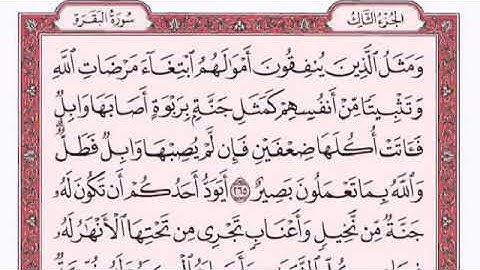 الجزء الثالث
سورة البقرة
وَمَثَلُ الَّذِينَ يُنفِقُونَ أَمْوَالَهُمُ ابْتِغَاءَ مَرْضَاتِ اللَّهِ
وَتَثْبِيتًا مِّنْ أَنفُسِهِمْ كَمَثَلِ جَنَّةٍ بِرَبْوَةٍ أَصَابَهَا وَابِلٌ
فَآتَتْ أُكُلَهَا ضِعْفَيْنِ فَإِن لَّمْ يُصِبْهَا وَابِلٌ فَطَلٌّ
وَاللَّهُ بِمَا تَعْمَلُونَ بَصِيرٌ ٢٦٥ أَيَوَدُّ أَحَدُكُمْ أَن تَكُونَ لَهُ
جَنَّةٌ مِّن نَّخِيلٍ وَأَعْنَابٍ تَجْرِي مِن تَحْتِهَا الْأَنْهَارُ لَهُ